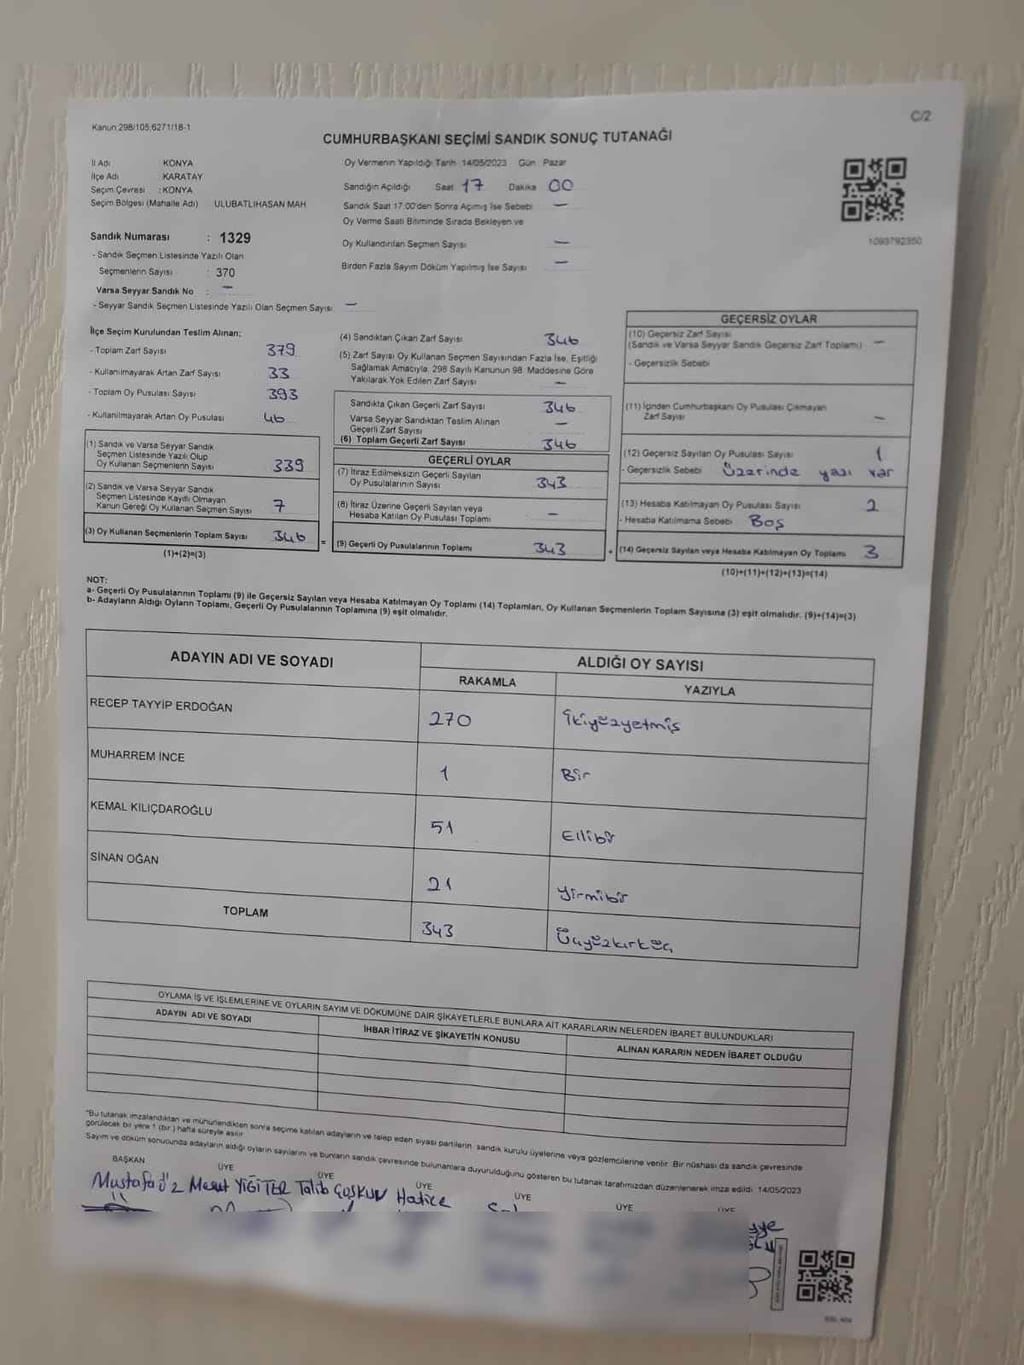 C/2
Kanun 298/105,6271/18-1
CUMHURBAŞKANI SEÇİMİ SANDIK SONUÇ TUTANAĞI
İl Adı KONYA
İlçe Adı KARATAY
Seçim Çevresi : KONYA
Seçim Bölgesi (Mahalle Adı) ULUBATLIHASAN MAH
Sandık Numarası : 1329
- Sandık Seçmen Listesinde Yazılı Olan
Seçmenlerin Sayısı : 370
Varsa Seyyar Sandık No : —
- Seyyar Sandık Seçmen Listesinde Yazılı Olan Seçmen Sayısı —
Oy Vermenin Yapıldığı Tarih 14/05/2023 Gün Pazar
Sandığın Açıldığı Saat 17 Dakika 00
Sandık Saat 17:00'den Sonra Açmış İse Sebebi —
Oy Verme Saati Bitiminde Sırada Bekleyen ve
Oy Kullandırılan Seçmen Sayısı —
Birden Fazla Sayım Döküm Yapılmış İse Sayısı —
1093792350
İlçe Seçim Kurulundan Teslim Alınan;
- Toplam Zarf Sayısı 379
- Kullanılmayarak Artan Zarf Sayısı 33
- Toplam Oy Pusulası Sayısı 393
- Kullanılmayarak Artan Oy Pusulası 46
(1) Sandık ve Varsa Seyyar Sandık
Seçmen Listesinde Yazılı Olup
Oy Kullanan Seçmenlerin Sayısı 339
(2) Sandık ve Varsa Seyyar Sandık
Seçmen Listesinde Kayıtlı Olmayan
Kanun Gereği Oy Kullanan Seçmen Sayısı 7
(3) Oy Kullanan Seçmenlerin Toplam Sayısı 346
(1)+(2)=(3)
(4) Sandıktan Çıkan Zarf Sayısı 346
(5) Zarf Sayısı Oy Kullanan Seçmen Sayısından Fazla İse, Eşitliği
Sağlamak Amacıyla, 298 Sayılı Kanunun 98. Maddesine Göre
Yakılarak Yok Edilen Zarf Sayısı —
Sandıkta Çıkan Geçerli Zarf Sayısı 346
Varsa Seyyar Sandıktan Teslim Alınan
Geçerli Zarf Sayısı —
(6) Toplam Geçerli Zarf Sayısı 346
GEÇERLİ OYLAR
(7) İtiraz Edilmeksizin Geçerli Sayılan
Oy Pusulalarının Sayısı 343
(8) İtiraz Üzerine Geçerli Sayılan veya
Hesaba Katılan Oy Pusulası Toplamı —
= (9) Geçerli Oy Pusulalarının Toplamı 343 +
GEÇERSİZ OYLAR
(10) Geçersiz Zarf Sayısı
(Sandık ve Varsa Seyyar Sandık Geçersiz Zarf Toplamı) —
- Geçersizlik Sebebi
(11) İçinden Cumhurbaşkanı Oy Pusulası Çıkmayan
Zarf Sayısı —
(12) Geçersiz Sayılan Oy Pusulası Sayısı 1
- Geçersizlik Sebebi Üzerinde yazı var
(13) Hesaba Katılmayan Oy Pusulası Sayısı 2
- Hesaba Katılmama Sebebi Boş
(14) Geçersiz Sayılan veya Hesaba Katılmayan Oy Toplamı 3
(10)+(11)+(12)+(13)=(14)
NOT:
a- Geçerli Oy Pusulalarının Toplamı (9) ile Geçersiz Sayılan veya Hesaba Katılmayan Oy Toplamı (14) Toplamları, Oy Kullanan Seçmenlerin Toplam Sayısına (3) eşit olmalıdır. (9)+(14)=(3)
b- Adayların Aldığı Oyların Toplamı, Geçerli Oy Pusulalarının Toplamına (9) eşit olmalıdır.
ADAYIN ADI VE SOYADI ALDIĞI OY SAYISI
RAKAMLA YAZIYLA
RECEP TAYYİP ERDOĞAN 270 İkiyüzyetmiş
MUHARREM İNCE 1 Bir
KEMAL KILIÇDAROĞLU 51 Ellibir
SİNAN OĞAN 21 Yirmibir
TOPLAM 343 Üçyüzkırküç
OYLAMA İŞ VE İŞLEMLERİNE VE OYLARIN SAYIM VE DÖKÜMÜNE DAİR ŞİKAYETLERLE BUNLARA AİT KARARLARIN NELERDEN İBARET BULUNDUKLARI
ADAYIN ADI VE SOYADI İHBAR İTİRAZ VE ŞİKAYETİN KONUSU ALINAN KARARIN NEDEN İBARET OLDUĞU
"Bu tutanak imzalandıktan ve mühürlendikten sonra seçime katılan adayların ve talep eden siyasi partilerin, sandık kurulu üyelerine veya gözlemcilerine verilir. Bir nüshası da sandık çevresinde
görülecek bir yere 1 (bir ) hafta süreyle asılır.
Sayım ve döküm sonucunda adayların aldığı oyların sayılarını ve bunların sandık çevresinde bulunanlara duyurulduğunu gösteren bu tutanak tarafımızdan düzenlenerek imza edildi. 14/05/2023
BAŞKAN ÜYE ÜYE ÜYE ÜYE ÜYE ÜYE
Mustafa Öz Mesut YİĞİTER Talib COŞKUN Hatice